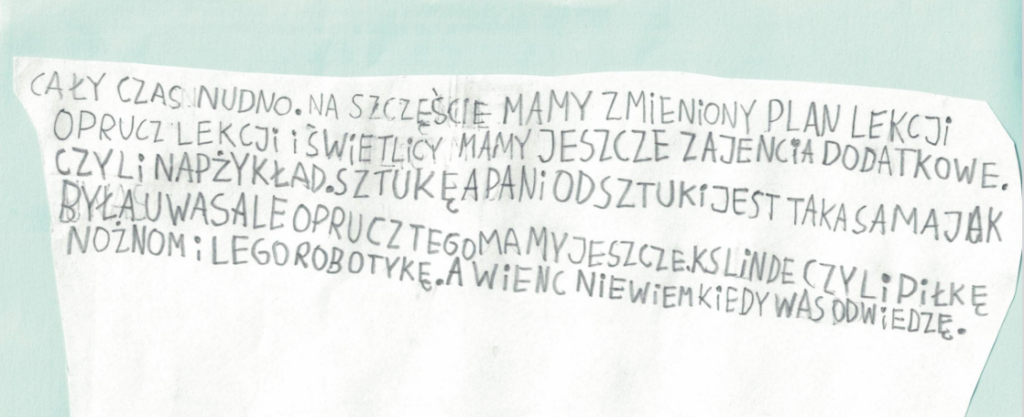 CAŁY CZAS NUDNO. NA SZCZĘŚCIE MAMY ZMIENIONY PLAN LEKCJI
OPRUCZ LEKCJI I ŚWIETLICY MAMY JESZCZE ZAJENCIA DODATKOWE.
CZYLI NAPŻYKŁAD. SZTUKĘ A PANI OD SZTUKI JEST TAKA SAMA JAK
BYŁA U WAS ALE OPRUCZ TEGO MAMY JESZCZE. KS LINDE CZYLI PIŁKĘ
NOŻNOM I LEGOROBOTYKĘ. A WIENC NIEWIEM KIEDY WAS ODWIEDZĘ.